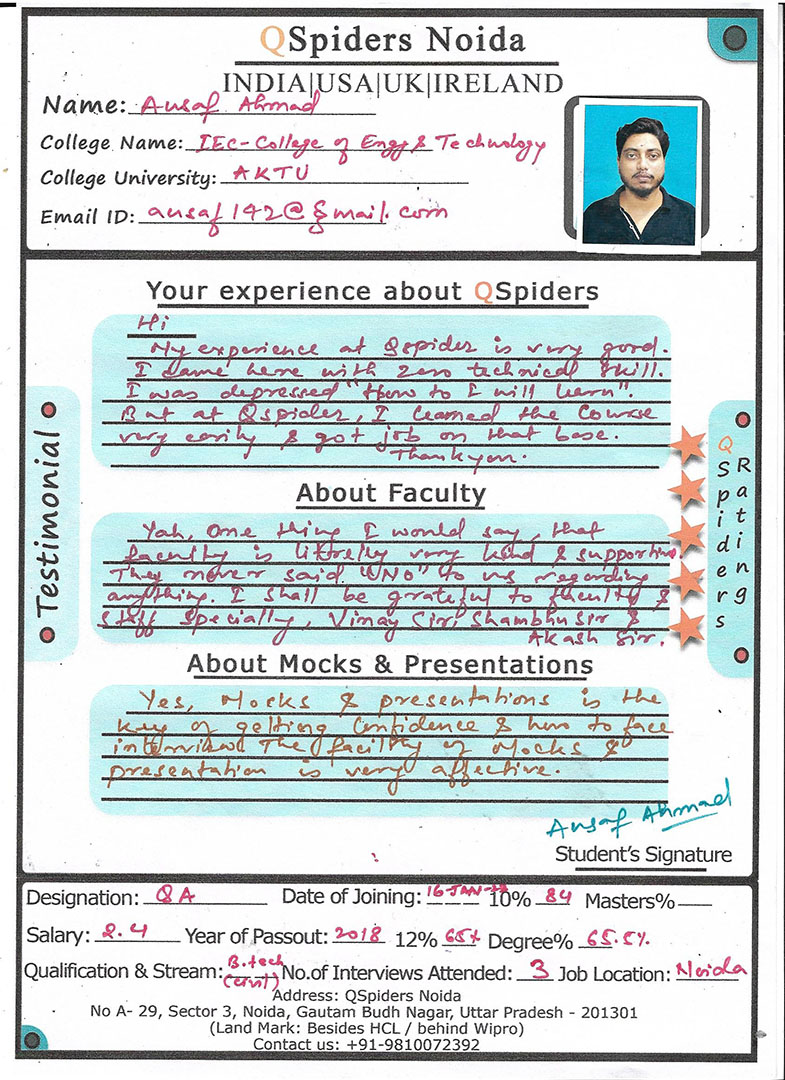 QSpiders Noida
INDIA|USA|UK|IRELAND
Name: Ausaf Ahmad
College Name: IEC-College of Engg & Technology
College University: AKTU
Email ID: ausaf142@gmail.com
Your experience about QSpiders
Hi
My experience at Qspider is very good.
I came here with zero technical skill.
I was depressed "How to I will learn".
But at Qspider, I learned the course
very easily & got job on that base.
Thankyou.
About Faculty
Yah, One thing I would say, that
faculty is littrelly very kind & supporting.
They never said "NO" to us regarding
anything. I shall be grateful to faculty &
Staff specially, Vinay Sir, Shambhu Sir &
Akash Sir.
About Mocks & Presentations
Yes, Mocks & presentations is the
key of getting Confidence & how to face
interview. The facility of Mocks &
presentation is very affective.
Testimonial
QSpiders
Ratings
Ausaf Ahmad
Student's Signature
Designation: QA Date of Joining: 16-JAN- 10% 84 Masters%
Salary: 2.4 Year of Passout: 2018 12% 65% Degree% 65.5%
Qualification & Stream: B.tech (civil) No.of Interviews Attended: 3 Job Location: Noida
Address: QSpiders Noida
No A- 29, Sector 3, Noida, Gautam Budh Nagar, Uttar Pradesh - 201301
(Land Mark: Besides HCL / behind Wipro)
Contact us: +91-9810072392